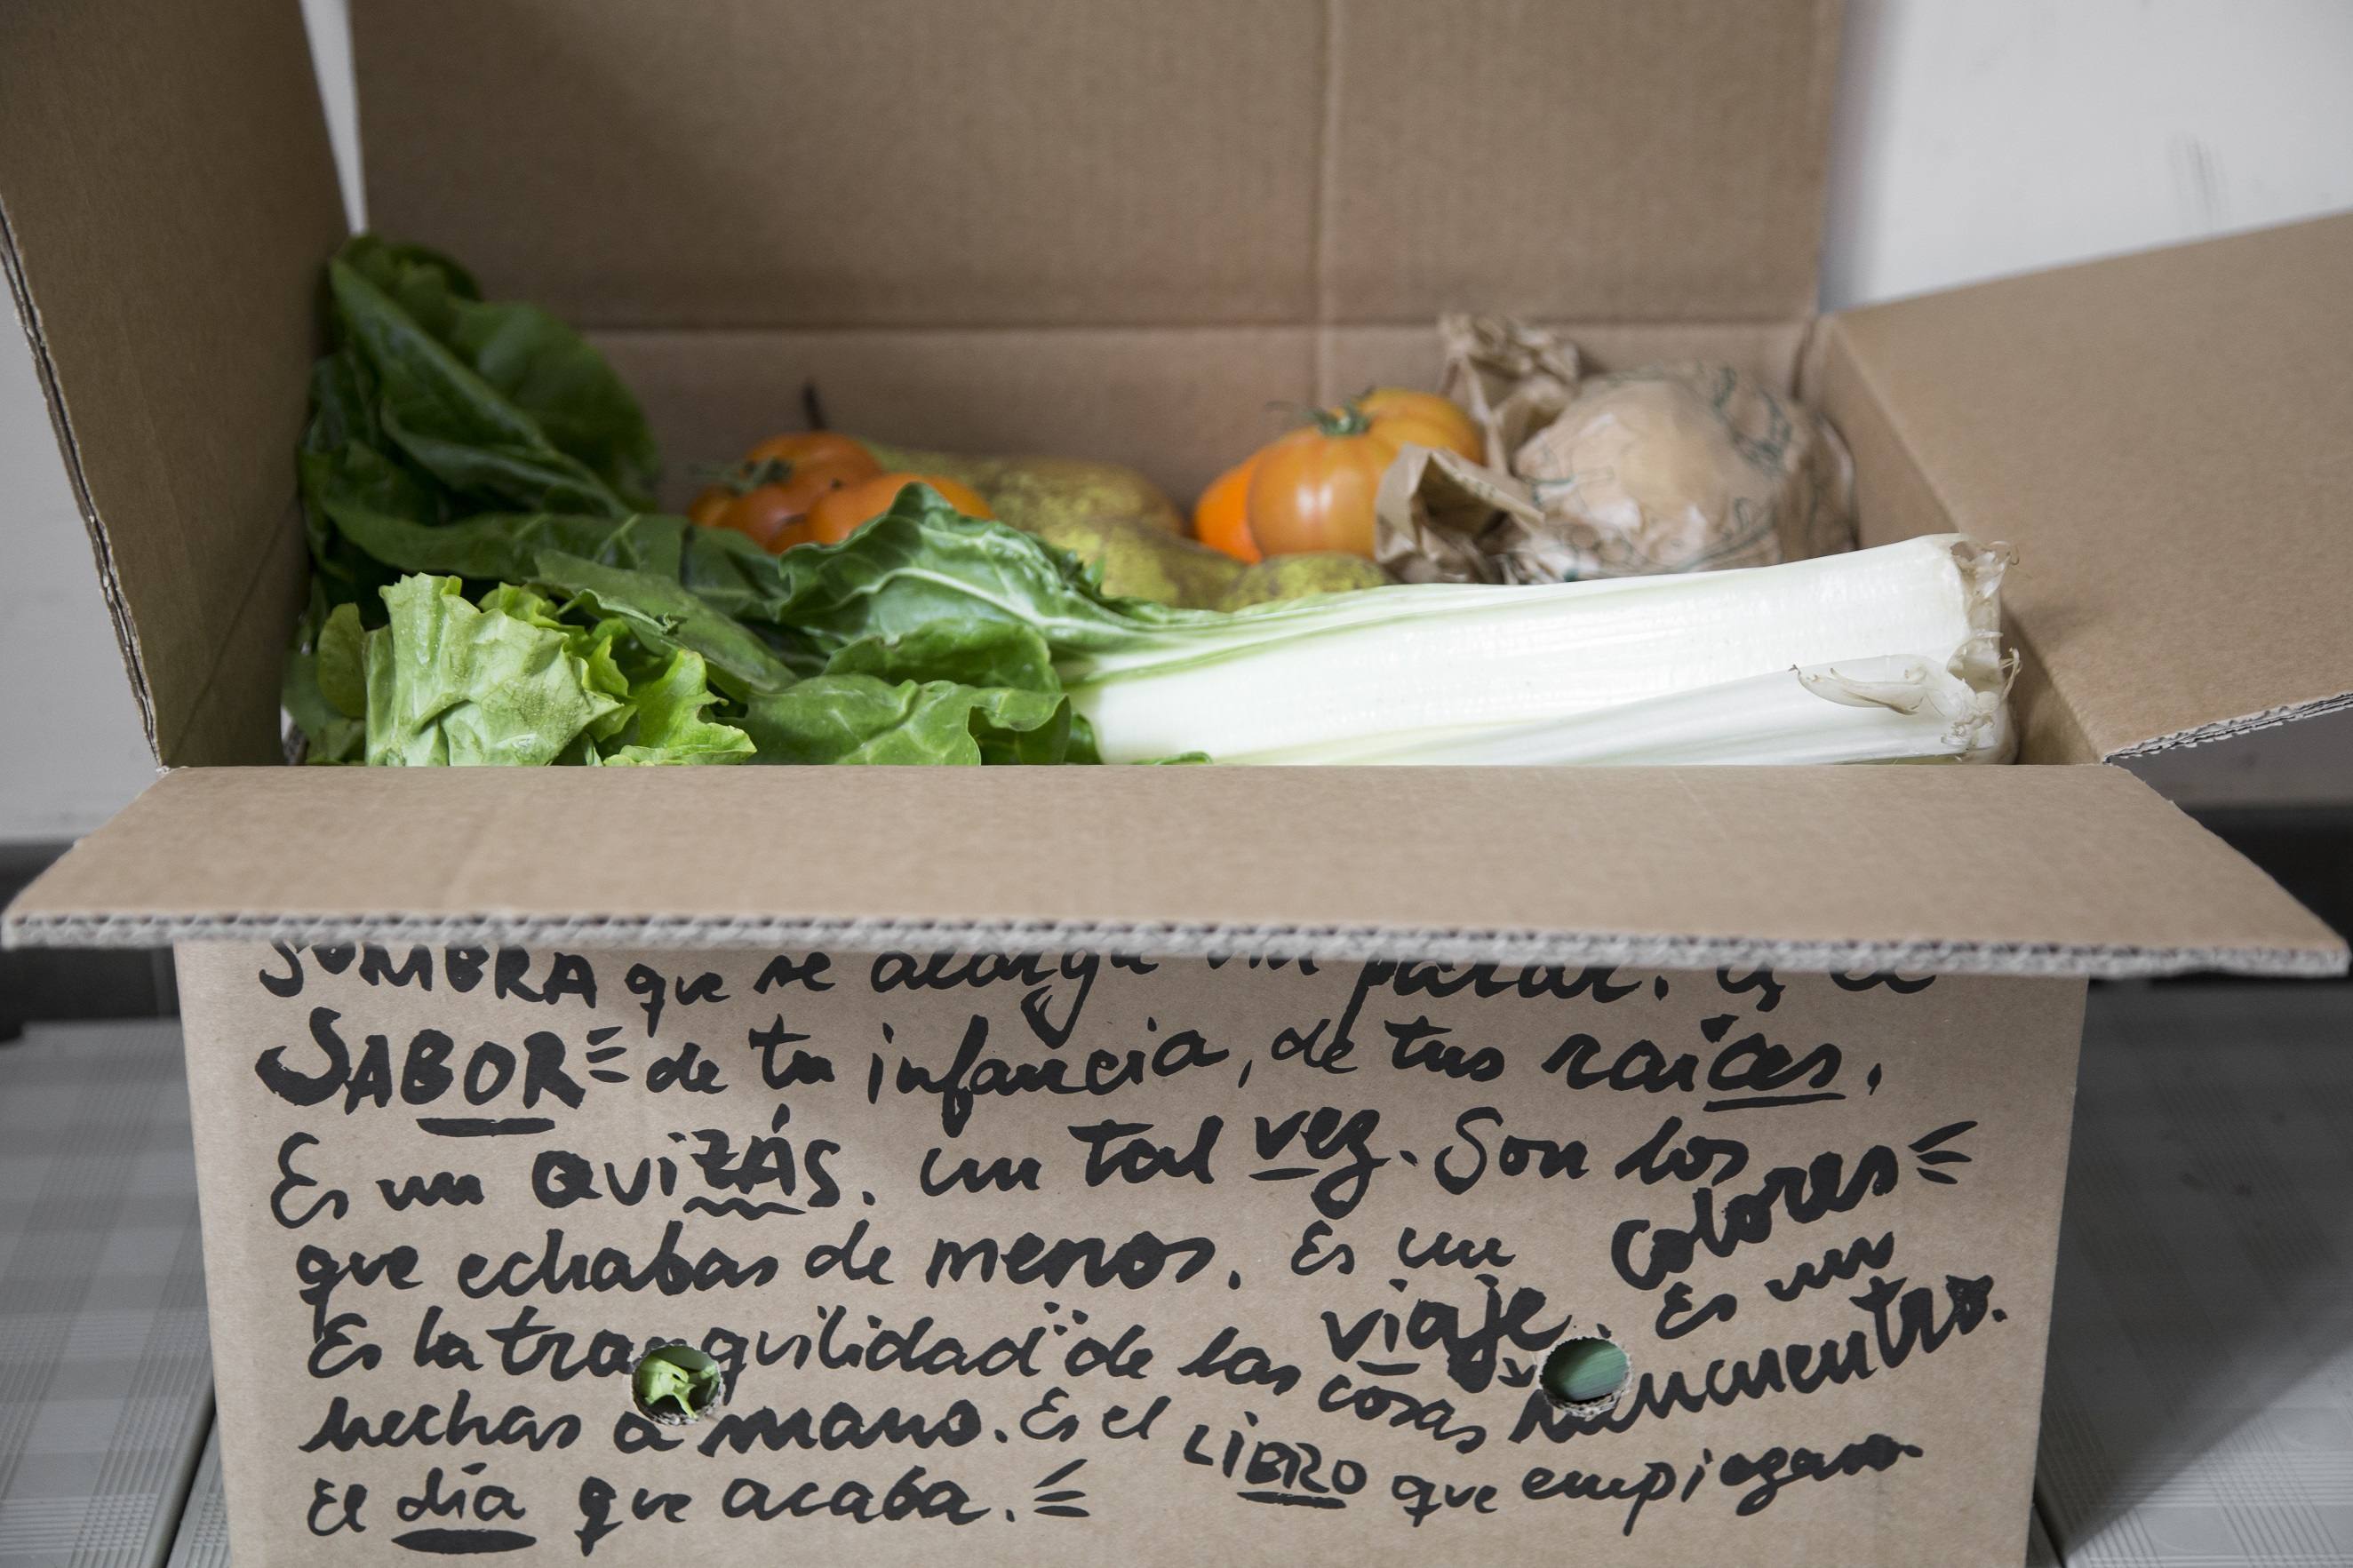 SOMBRA que se alarga sin parar. Es el
SABOR de tu infancia, de tus raíces.
Es un QuiZÁS, un tal vez. Son los colores
que echabas de menos. Es un viaje. Es un reencuentro.
Es la tranquilidad de las cosas
hechas a mano. Es el LiBRO que empiezas
El día que acaba.